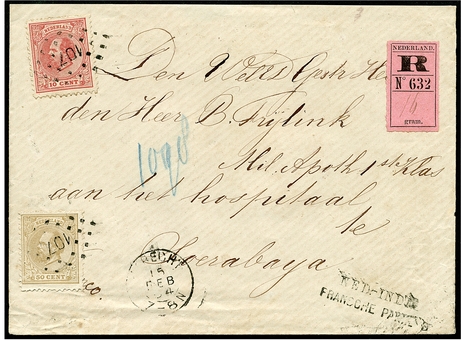 NEDERLAND
10 CENT
107
NEDERLAND.
R
Nº 632
gram.
Den
den Heer B. Frijlink
Mil. Apoth 1ste Klas
aan het hospitaal
te
Soerabaya
1098
50 CENT
107
RECHT
15
FEB
NED-INDIE
FRANSCHE